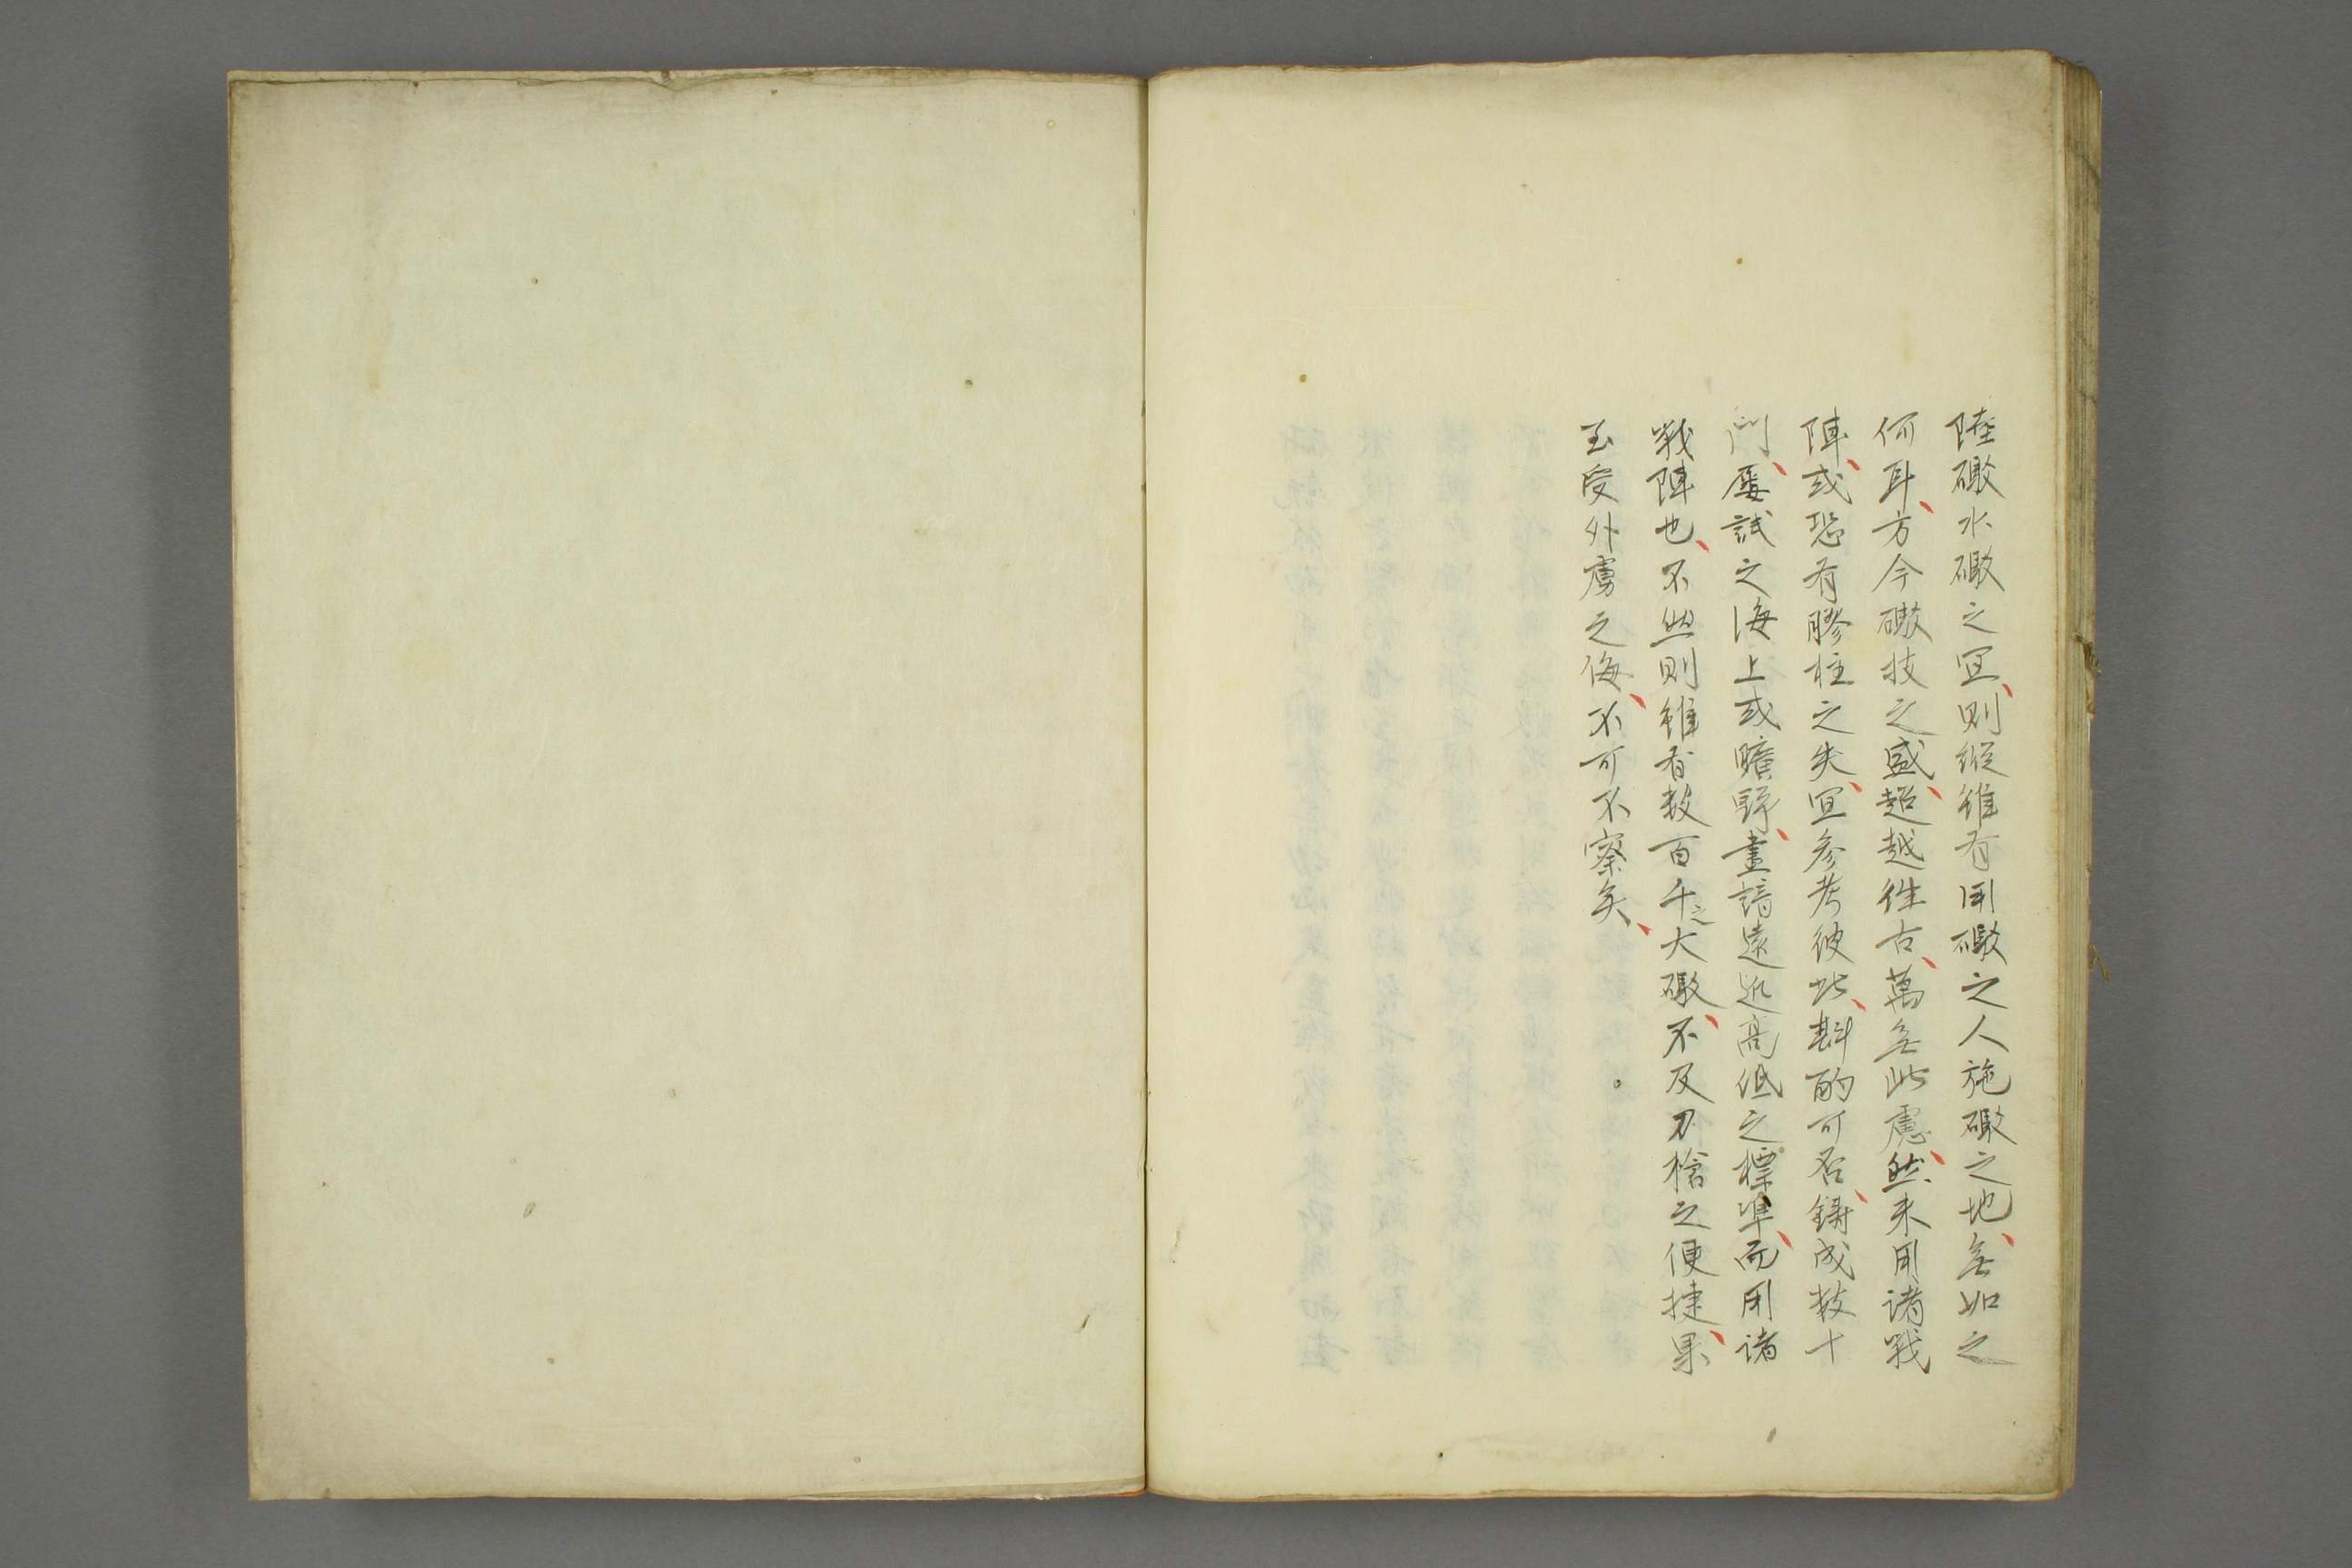 陸礮水礮之宜、則縦雖有用礮之人施礮之地、無如之
何耳、方今礮技之盛、超越徃古、萬無此慮、然未用諸戰
陣、或恐有膠柱之失、宜参考彼此、斟酌可否、鑄成数十
門、屡試之海上或曠野、盡諳遠近高低之標準、而用諸
戰陣也、不然則雖有数百千之大礮、不及刀槍之便捷、果
至受外虜之侮、不可不察矣、